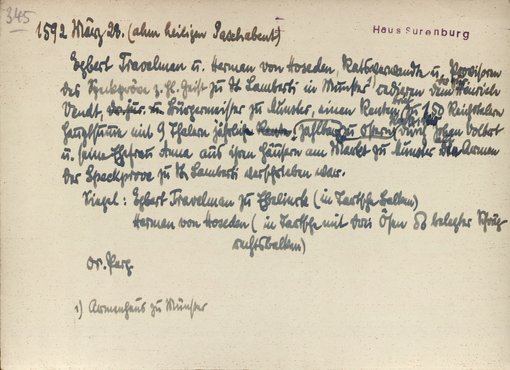 345
1592 März 28. (ahm heiligen Paschabent)
Haus Surenburg
Egbert Travelman u. Herman von Hoseden, Ratsverwandte u. Provisoren
der Speckpröve z. hl. Geist zu St. Lamberti in Münster 1) cedieren dem Heinrich
Vendt, Bürgermeister zu Münster, einen Rentenbrief 150 Reichstalern
Hauptsumme mit 9 Thalern jährliche Rente, zahlbar zu Ostern durch Johan Volbert
u. seine Ehefrau Anna aus ihren Häusern am Markt zu Münster den Armen
der Speckprove zu St. Lamberti verschrieben war.
Siegel: Egbert Travelman zu Ebelinck (in Tartsche Balken)
Herman von Hoseden (in Tartsche mit drei Ösen belegter Schräg
rechtsbalken)
Or. Perg.
1) Armenhaus zu Münster